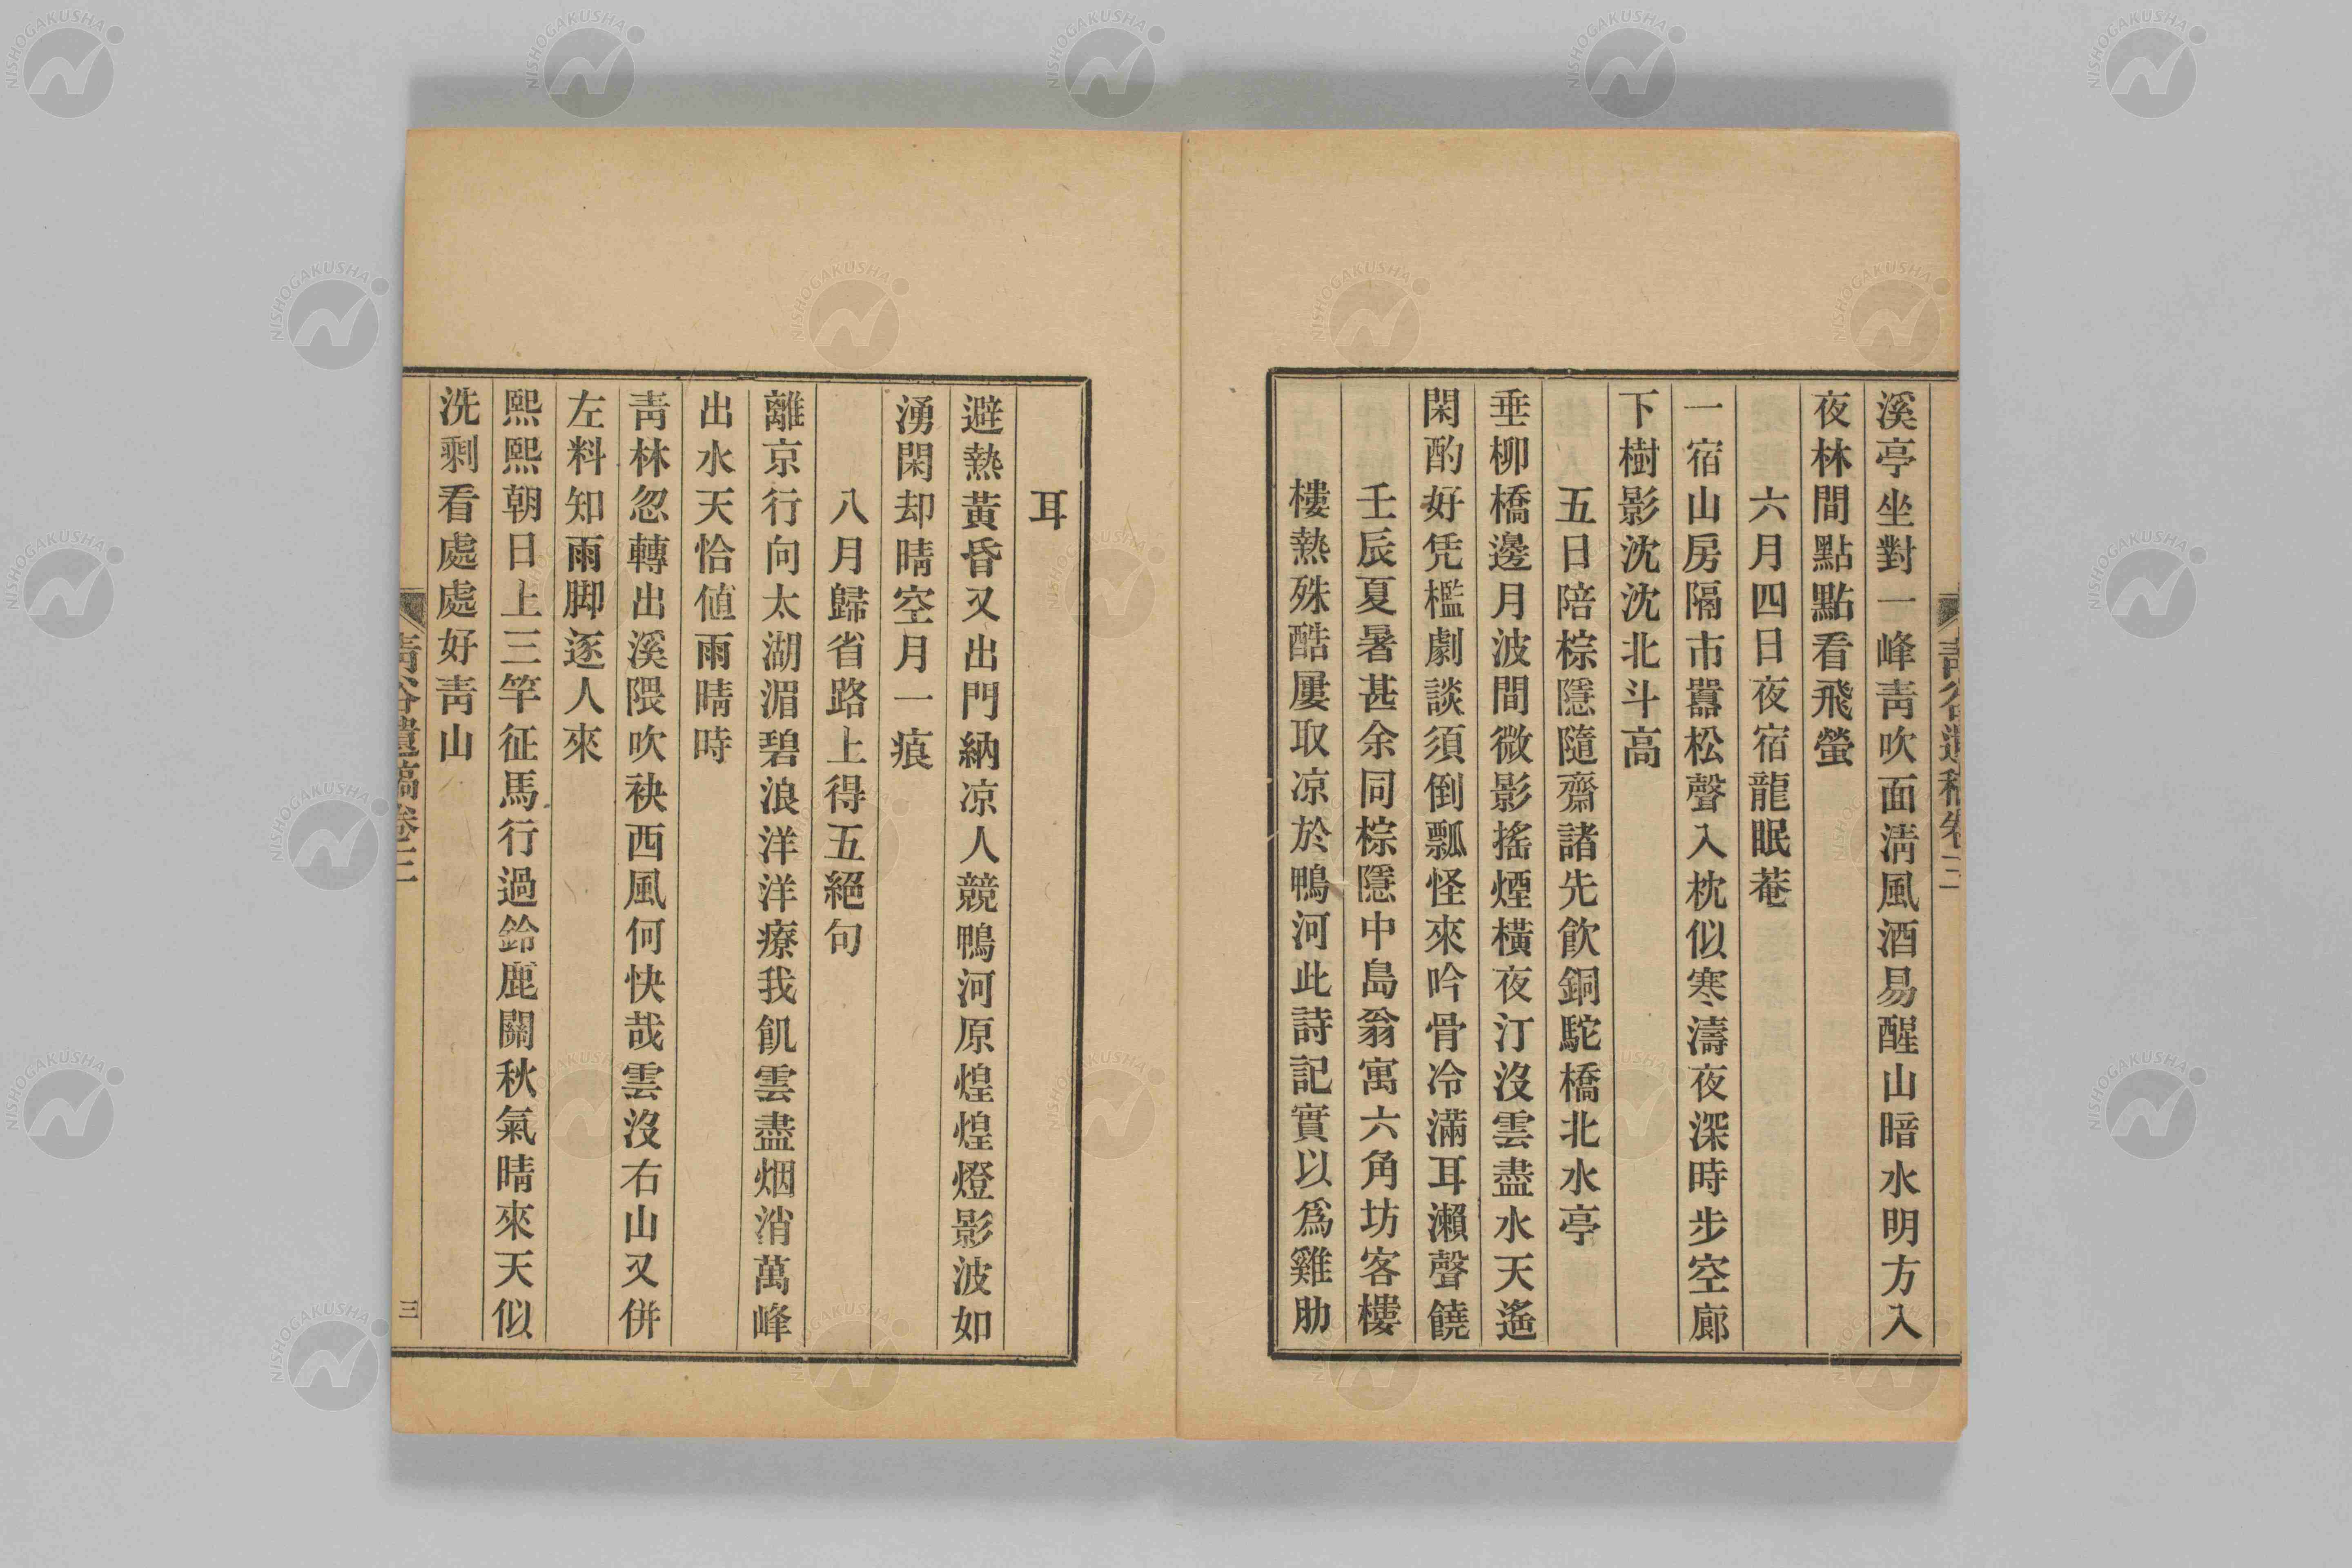 溪亭坐對一峰靑吹面淸風酒易醒山暗水明方入
夜林間點點看飛螢
六月四日夜宿龍眠菴
一宿山房隔市囂松聲入枕似寒濤夜深時步空廊
下樹影沈沈北斗高
五日陪棕隱隨齋諸先飮銅駝橋北水亭
垂柳橋邊月波間微影搖煙橫夜汀沒雲盡水天遙
閑酌好凭檻劇談須倒瓢怪來吟骨冷滿耳瀨聲饒
壬辰夏暑甚余同棕隱中島翁寓六角坊客樓
樓熱殊酷屢取凉於鴨河此詩記實以爲雞肋
耳
避熱黃昏又出門納凉人競鴨河原煌煌燈影波如
湧閑却晴空月一痕
八月歸省路上得五絕句
離京行向太湖湄碧浪洋洋療我飢雲盡烟消萬峰
出水天恰値雨晴時
靑林忽轉出溪隈吹袂西風何快哉雲沒右山又併
左料知雨脚逐人來
熙熙朝日上三竿征馬行過鈴鹿關秋氣晴來天似
洗剩看處處好靑山
靑谷遺稿卷三
三
NISHOGAKUSHA